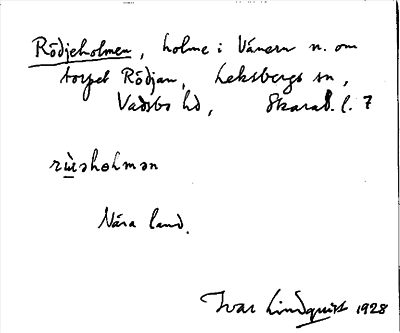 Rödjeholmen, holme i Vänern n. om
torpet Rödjan, Leksbergs sn,
Vadsbo hd, Skarab. l. 7
rɯ̀əholmən
Nära land.
Ivar Lindquist 1928